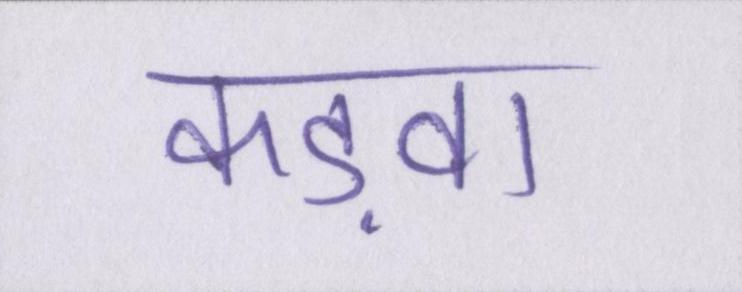 कड़वा